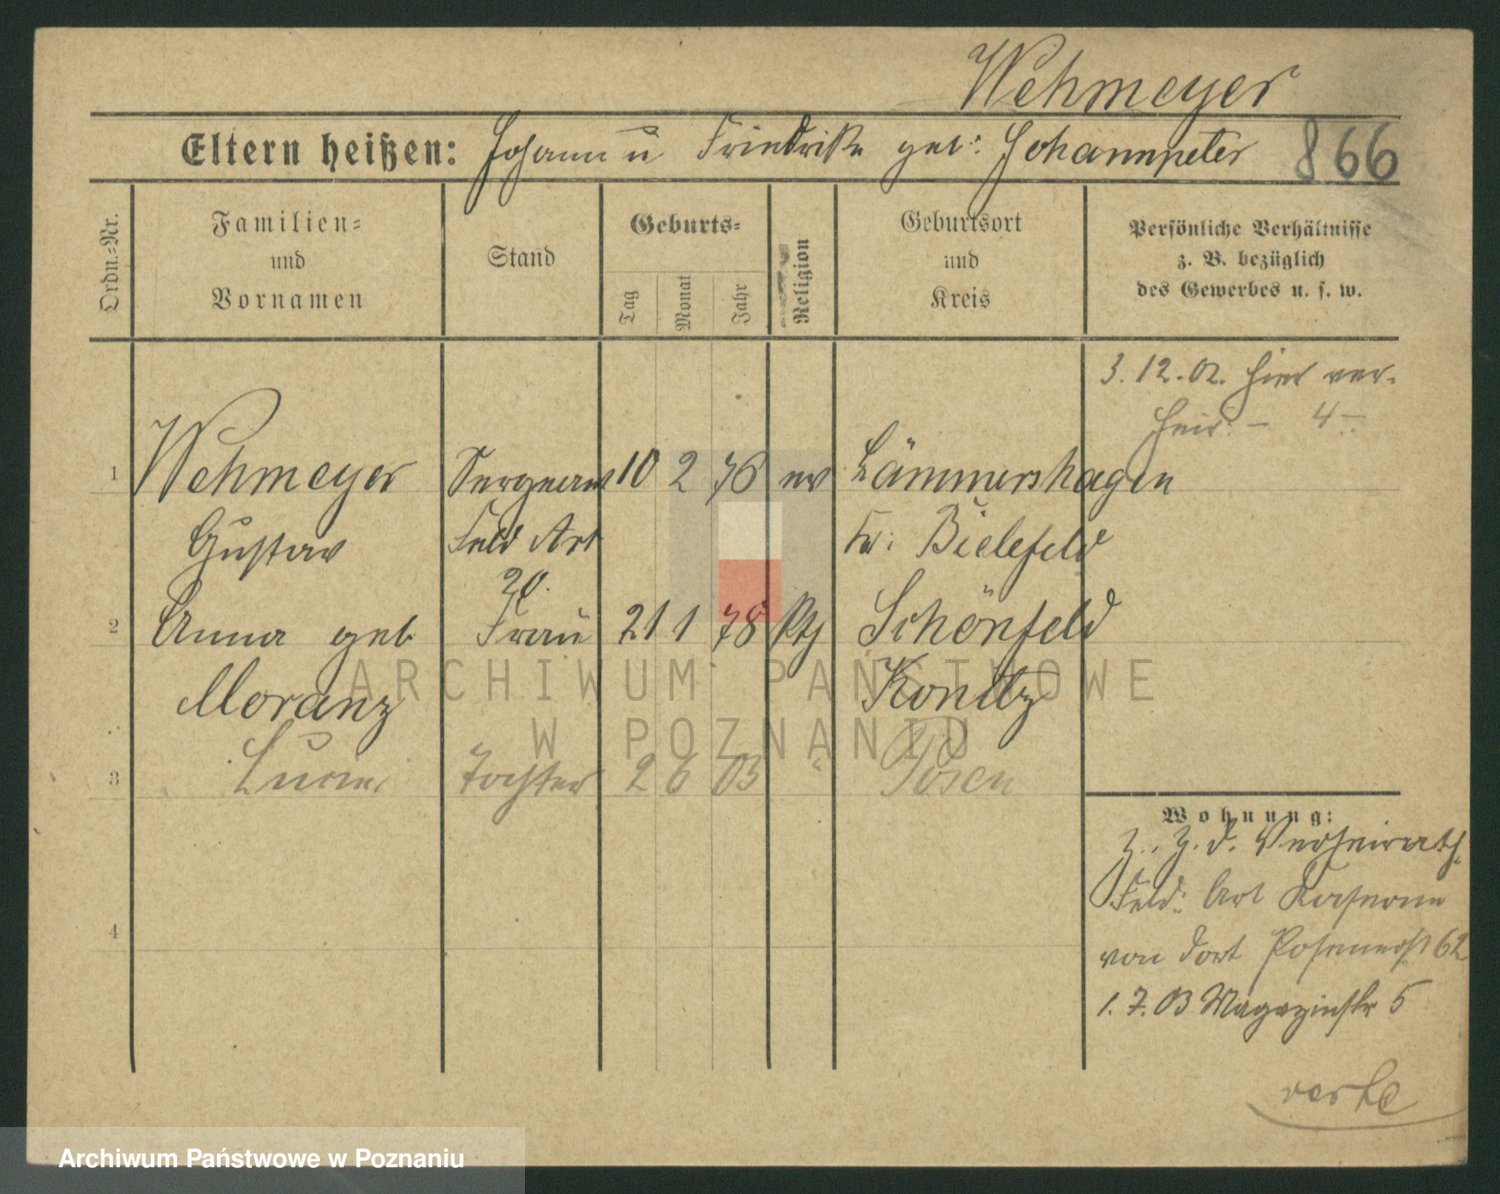 Wehmeyer
Eltern heißen: Johann u Friedrike geb: Johannpeter 866
Ordn.-Nr.
Familien-
und
Vornamen
Stand
Geburts-
Tag
Monat
Jahr
Religion
Geburtsort
und
Kreis
Persönliche Verhältnisse
z. B. bezüglich
des Gewerbes u. s. w.
3.12.02. hier ver-
heir. – 4
1 Wehmeyer Sergeant 10 2 76 ev Lämmershagen
Gustav Feld Art Kr: Bielefeld
20.
2 Anna geb Frau 21 1 78 kth Schönfeld
Moranz Konitz
3 Lucie Tochter 2 6 03 " Posen
4
Wohnung:
z. Z. d. Verheirath.
Feld: Art Kaserne
von dort Posenerst 62
1.7.03 Magazinstr 5
ARCHIWUM PAŃSTWOWE
W POZNANIU
Archiwum Państwowe w Poznaniu